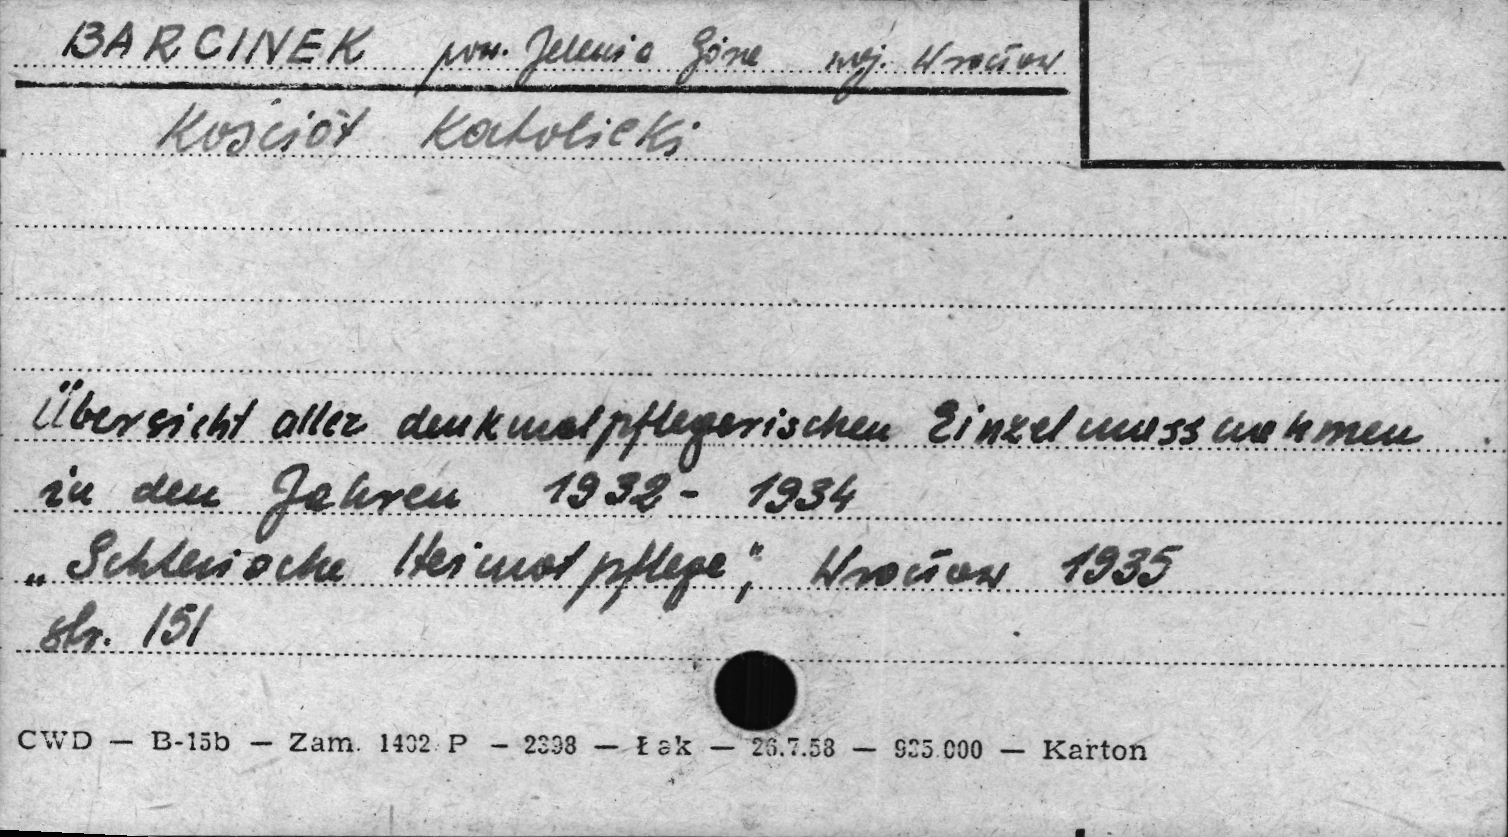 BARCINEK pow. Jelenia Góra woj. Wrocław
Kościół Katolicki
Übersicht aller denkmalpflegerischen Einzelmassnahmen
in den Jahren 1932 - 1934
„Schlesische Heimatpflege", Wrocław 1935
str. 151
CWD — B-15b — Zam. 1402 P — 2398 — Łak — 26.7.58 — 935.000 — Karton